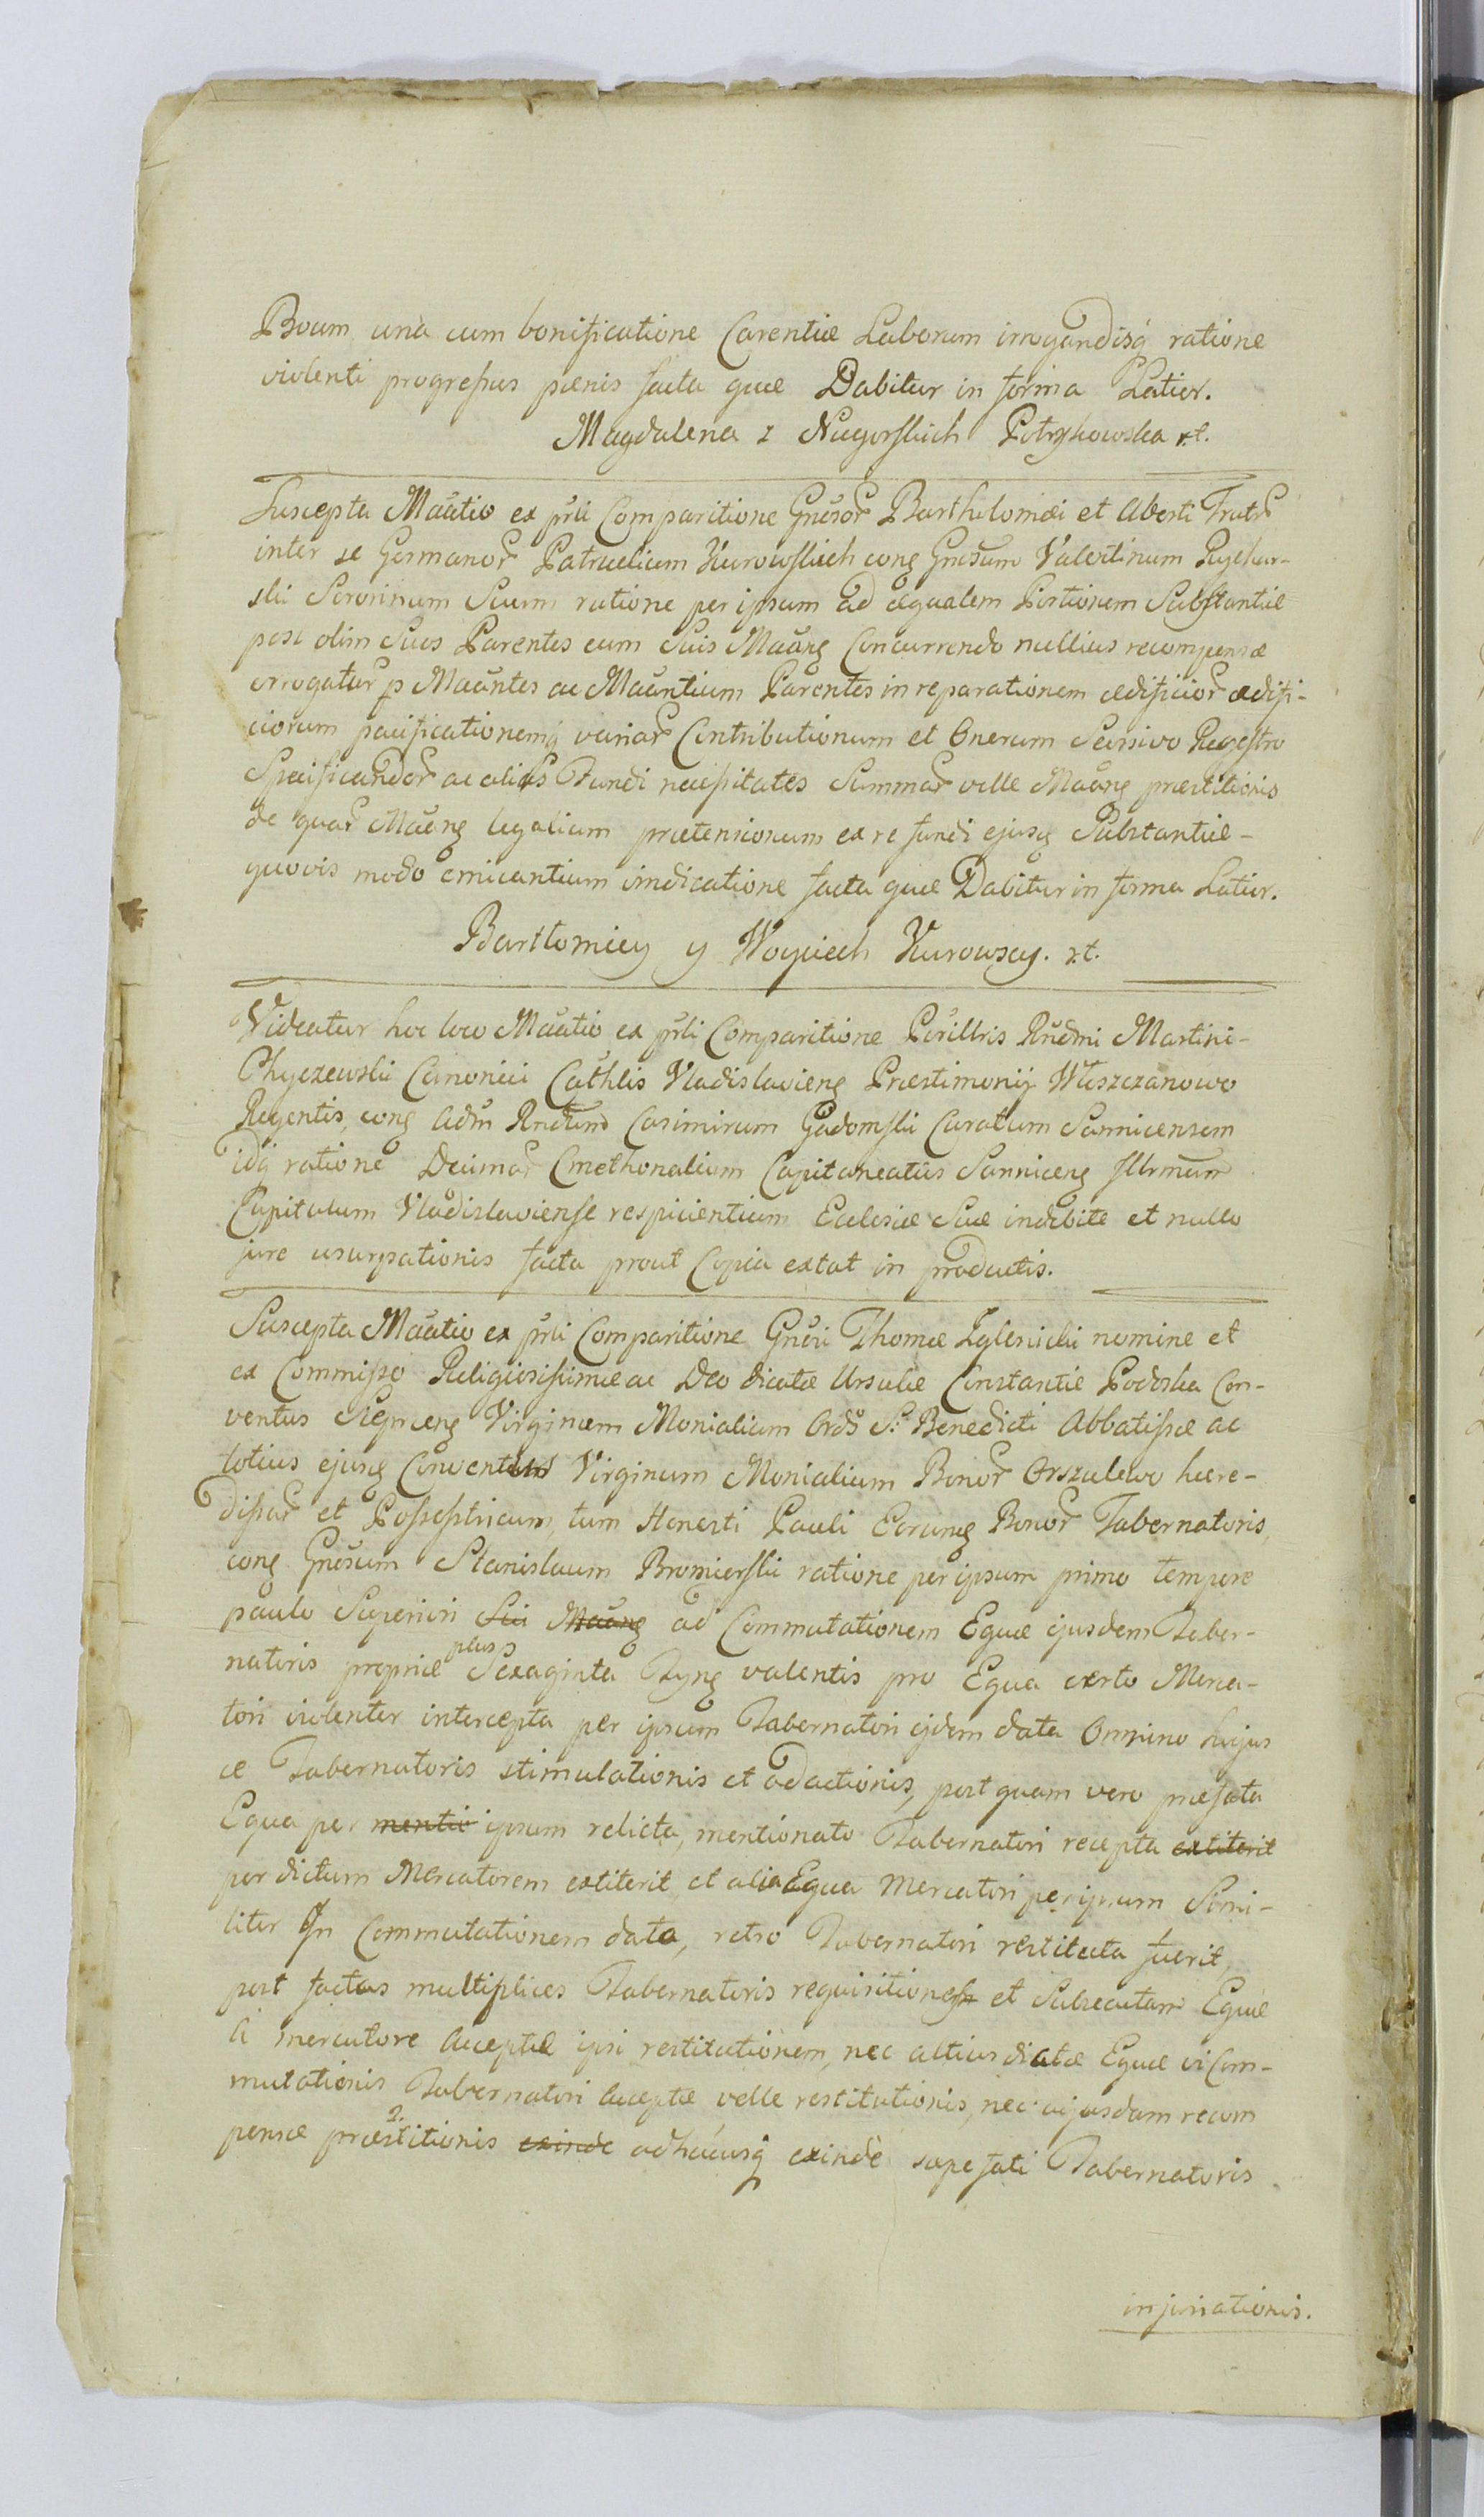 Boum unà cum bonificatione Carentiæ Laborum irrogandisq̃ ratione
violenti progressus pænis facta quæ Dabitur in forma Latior.
Magdalena z Nagorskich Potrykowska r.t.
Suscepta Mãatio ex prli Comparitione Gnũsor Bartholomæi et Aberti Fratr
inter se Germanor Patruelium Kurowskich cong Gnosum Valentinum Rychar-
ski Sororinum Suum ratione per ipsum ad æqualem Portionem Substantiæ
post olim Suos Parentes cum Suis Maãng Concurrendo nullius recompensæ
errogatur p Maãntes ac Maãntium Parentes in reparationem ædificior ædifi-
ciorum pacificationemq̃ variar Contributionum et Onerum Seorsivo Regestro
Specificandor ac alias Fundi necessitates Summar velle Maãng præstitionis
de quar Maãng legalium prætensionum ex re fundi ejusq Substantiæ -
quovis modo emicantium vindicatione facta quæ Dabitur in forma Latior.
Bartłomiey y Woyciech Kurowscy. r.t.
Videatur hoc loco Mãatio ex prli Comparitione Perillris Rñdmi Martini -
Chyczewski Canonici Cathlis Vladislavieng Præstimonij Włoszczanowo
Regentis, cong Adm Rndum Casimirum Gadomski Curatum Sannicensem
idq̃ ratione Decimar Cmethonalium Capitaneatûs Sanniceng Illrmum
Capitulum Vladislaviense respicientium Ecclesiæ Suæ indebite et nullo
jure usurpationis facta prout Copia extat in productis.
Suscepta Mãatio ex prli Comparitione Gnõsi Thomæ Iglenicki nomine et
ex Commisso Religiosissimæ ac Deo dicatæ Ursulæ Constantiæ Podoska Con-
ventus Sieprceng Virginum Monialium Ords S. Benedicti Abbatissæ ac
totius ejusq Conventus Virginum Monialium Bonor Orszulewo hære-
dissar et Possestricum, tum Honesti Pauli Eorumq Bonor Tabernatoris,
cong Gnosum Stanislaum Bromierski ratione per ipsum primo tempore
paulo Superiori Sui Maãng ad Commutationem Equæ ejusdem Taber-
natoris propriæ plus Sexaginta Tyng valentis pro Equa certo Merca-
tori violenter intercepta per ipsum Tabernatori ejdem data Omnino hujus
ce Tabernatoris stimulationis et adactionis, post quam vero præfata
Equa per mentio ipsum relicta, mentionato Tabernatori recepta extiterit
per dictum Mercatorem extiterit, et alia Equa Mercatori per ipsum Simi-
liter In Commutationem data, retro Tabernatori restituta fuerit,
post factas multiplices Tabernatoris requisitiones et Subsecutam Equæ
à mercatore Acceptæ ipsi restitutionem, nec altius dictæ Equæ vi Com-
mutationis Tabernatori Acceptæ velle restitutionis, nec cujusdam recom
pensæ præstitionis exinde adhucusq̃ exindè sæpe fati Tabernatoris
injuriationis.